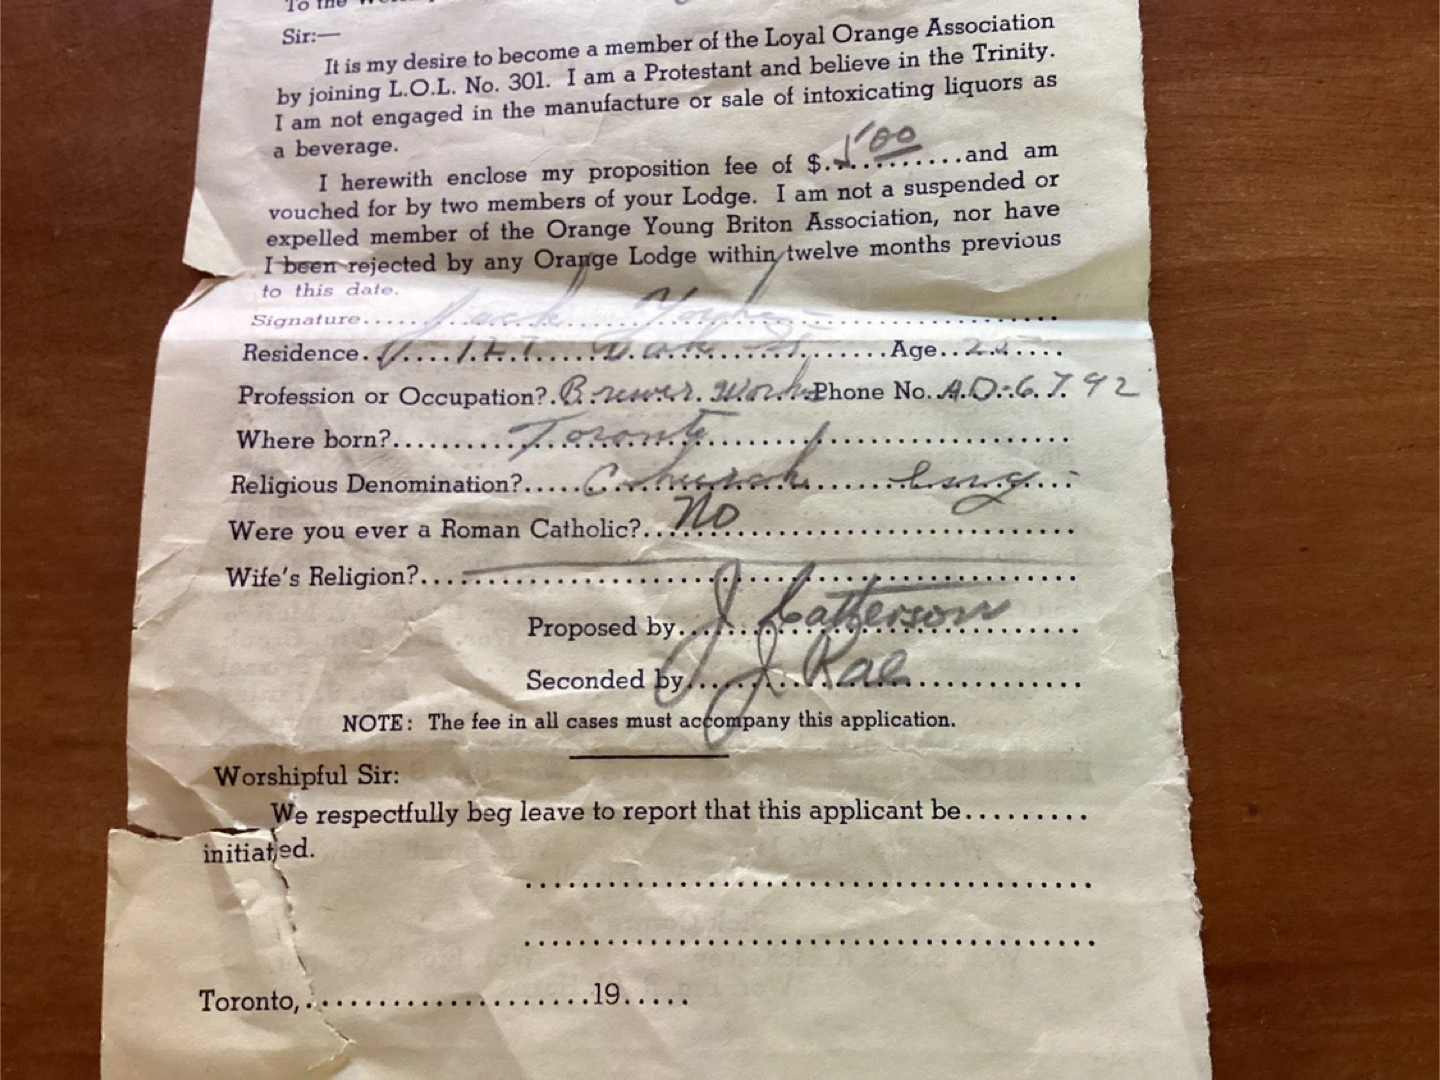 To the
Sir:—
It is my desire to become a member of the Loyal Orange Association
by joining L.O.L. No. 301. I am a Protestant and believe in the Trinity.
I am not engaged in the manufacture or sale of intoxicating liquors as
a beverage.
I herewith enclose my proposition fee of $.......... and am
vouched for by two members of your Lodge. I am not a suspended or
expelled member of the Orange Young Briton Association, nor have
I been rejected by any Orange Lodge within twelve months previous
to this date.
Signature..... Jack
Residence..... Oak St...... Age.......
Profession or Occupation? Brewer Works Phone No. AD. 6792
Where born?..... Toronto
Religious Denomination?..... Church Eng.
Were you ever a Roman Catholic?.. No
Wife's Religion?....
Proposed by.. J
Seconded by.. J Rae
NOTE: The fee in all cases must accompany this application.
Worshipful Sir:
We respectfully beg leave to report that this applicant be.........
initiated.
Toronto,....................19.....